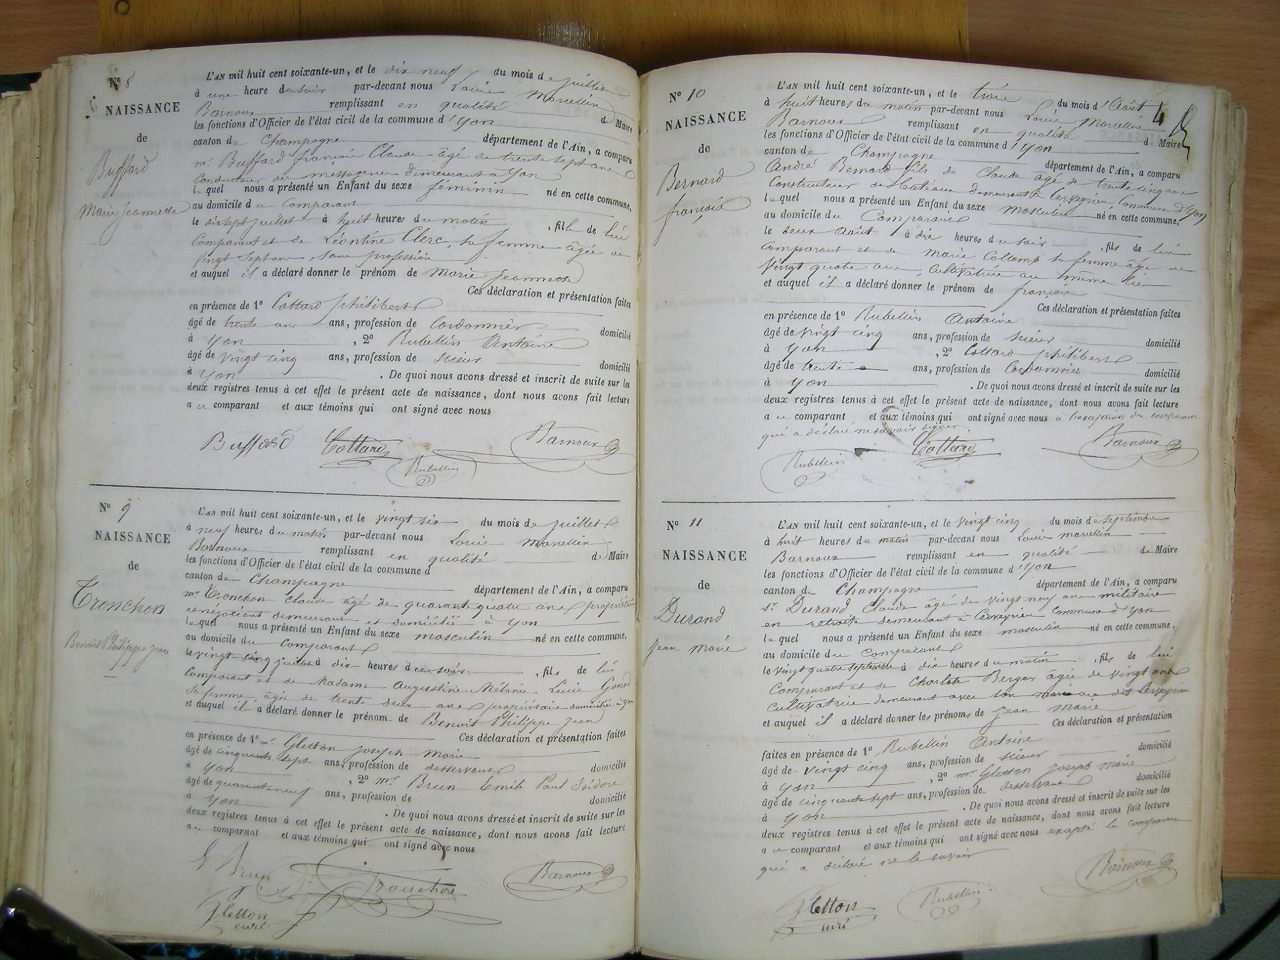 N° 8
NAISSANCE
de
Buffard
Marie Jeannette
L'AN mil huit cent soixante-un, et le dix neuf du mois de juillet
à une heure du soir par-devant nous Louis Marcellin
Barnoux remplissant en qualité de Maire
les fonctions d'Officier de l'état civil de la commune d'Yon
canton de Champagne département de l'Ain, a comparu
mr Buffard françois Claude âgé de trente sept ans
Conducteur de messageries demeurant à Yon
lequel nous a présenté un Enfant du sexe féminin né en cette commune,
au domicile du Comparant
le dix sept juillet à huit heures du matin, fille de lui
Comparant et de Léontine Clerc, sa femme âgée de
vingt sept ans sans profession
et auquel il a déclaré donner le prénom de Marie Jeannette
Ces déclaration et présentation faites
en présence de 1° Cottard Philibert
âgé de trente ans ans, profession de Cordonnier domicilié
à Yon, 2° Rubellin Antoine
âgé de vingt cinq ans, profession de scieur domicilié
à Yon. De quoi nous avons dressé et inscrit de suite sur les
deux registres tenus à cet effet le présent acte de naissance, dont nous avons fait lecture
au comparant et aux témoins qui ont signé avec nous
Buffard Cottard Barnoux
Rubellin
N° 9
NAISSANCE
de
Tronchon
Benoit Philippe Jean
L'AN mil huit cent soixante-un, et le vingt six du mois de juillet
à neuf heures du matin par-devant nous Louis Marcellin
Barnoux remplissant en qualité de Maire
les fonctions d'Officier de l'état civil de la commune d
canton de Champagne département de l'Ain, a comparu
mr Tronchon claude âgé de quarante quatre ans propriétaire
négociant demeurant et domicilié à Yon
lequel nous a présenté un Enfant du sexe masculin né en cette commune,
au domicile du Comparant
le vingt cinq juillet à dix heures du soir, fils de lui
Comparant et de Madame Augustine Mélanie Lucie
sa femme âgée de trente deux ans propriétaire domiciliée à Yon
et auquel il a déclaré donner le prénom de Benoit Philippe Jean
Ces déclaration et présentation faites
en présence de 1° mr Gletton Joseph Marie
âgé de cinquante sept ans, profession de desservant domicilié
à Yon, 2° mr Brun Emile Paul Isidore
âgé de quarante neuf ans, profession de domicilié
à Yon. De quoi nous avons dressé et inscrit de suite sur les
deux registres tenus à cet effet le présent acte de naissance, dont nous avons fait lecture
au comparant et aux témoins qui ont signé avec nous
Brun Tronchon Barnoux
Gletton
curé
4
N° 10
NAISSANCE
de
Bernard
françois
L'AN mil huit cent soixante-un, et le trois du mois d'Août
à huit heures du matin par-devant nous Louis Marcellin
Barnoux remplissant en qualité de Maire
les fonctions d'Officier de l'état civil de la commune d'Yon
canton de Champagne département de l'Ain, a comparu
André Bernard fils de Claude âgé de trente cinq ans
Constructeur de bateaux demeurant à Cerveyrieu, Commune d'Yon
lequel nous a présenté un Enfant du sexe masculin né en cette commune,
au domicile du Comparant
le deux Août à dix heures du soir, fils de lui
comparant et de Marie Collomb sa femme âgée de
vingt quatre ans, cultivatrice au même lieu
et auquel il a déclaré donner le prénom de françois
Ces déclaration et présentation faites
en présence de 1° Rubellin Antoine
âgé de vingt cinq ans, profession de scieur domicilié
à Yon, 2° Cottard Philibert
âgé de trente ans, profession de Cordonnier domicilié
à Yon. De quoi nous avons dressé et inscrit de suite sur les
deux registres tenus à cet effet le présent acte de naissance, dont nous avons fait lecture
au comparant et aux témoins qui ont signé avec nous à l'exception du comparant
qui a déclaré ne savoir signer.
Rubellin Cottard Barnoux
N° 11
NAISSANCE
de
Durand
Jean Marie
L'AN mil huit cent soixante-un, et le vingt cinq du mois de septembre
à huit heures du matin par-devant nous Louis Marcellin
Barnoux remplissant en qualité de Maire
les fonctions d'Officier de l'état civil de la commune d'Yon
canton de Champagne département de l'Ain, a comparu
sr Durand Claude âgé de vingt neuf ans militaire
en retraite demeurant à Cerveyrieu Commune d'Yon
lequel nous a présenté un Enfant du sexe masculin né en cette commune,
au domicile du Comparant
le vingt quatre septembre à dix heures du matin, fils de lui
Comparant et de Charlote Berger âgée de vingt ans
Cultivatrice demeurant avec son mari au dit Cerveyrieu
et auquel il a déclaré donner le prénom de Jean Marie
Ces déclaration et présentation
faites en présence de 1° Rubellin Antoine
âgé de vingt cinq ans, profession de scieur domicilié
à Yon, 2° mr Gletton Joseph Marie
âgé de cinquante sept ans, profession de desservant domicilié
à Yon. De quoi nous avons dressé et inscrit de suite sur les
deux registres tenus à cet effet le présent acte de naissance, dont nous avons fait lecture
au comparant et aux témoins qui ont signé avec nous excepté le comparant
qui a déclaré ne le savoir
Gletton Rubellin Barnoux
curé